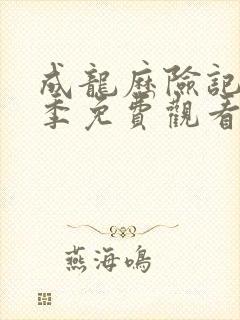 成龍歷險記
季免費觀看
燕海鳴